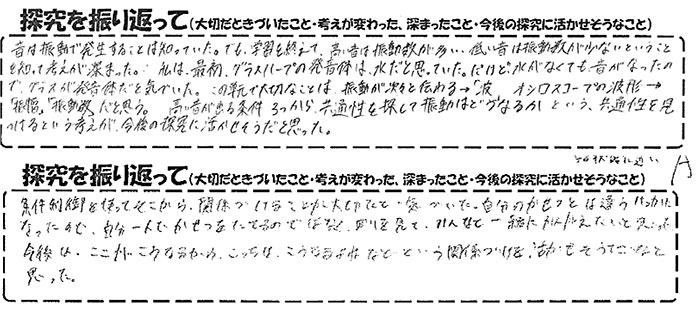 探究を振り返って(大切だときづいたこと・考えが変わった、深まったこと・今後の探究に活かせそうなこと)
音は振動で発生することは知っていた。でも、学習を終えて、高い音は振動数が多い、低い音は振動数が少ないということ
を知って考えが深まった。私は、最初、グラスハープの発音体は、水だと思っていた。だけど水がなくても音がなったの
で、グラスが発音体だと気づいた。この単元で大切なことは、振動が次々と伝わる→「波」 オシロスコープでの波形→
「振幅」「振動数」だと思う。高い音が出る条件3つから、共通性を探して振動はどうなるかという、共通性を見
つけるという考えが、今後の探究に活かせそうだと思った。
A
探究を振り返って(大切だときづいたこと・考えが変わった、深まったこと・今後の探究に活かせそうなこと)
条件制御を使ってそこから、関係づけることが大切だと気づいた。自分のかせつとは違う
になったので、自分一人でかせつをたてるのではなく、周りを見て、みんなと一緒にかんがえたいと思った
今後は、ここがこうなるから、こっちは、こうなるよねなどという関係づけを、活かせそうだなと
思った。